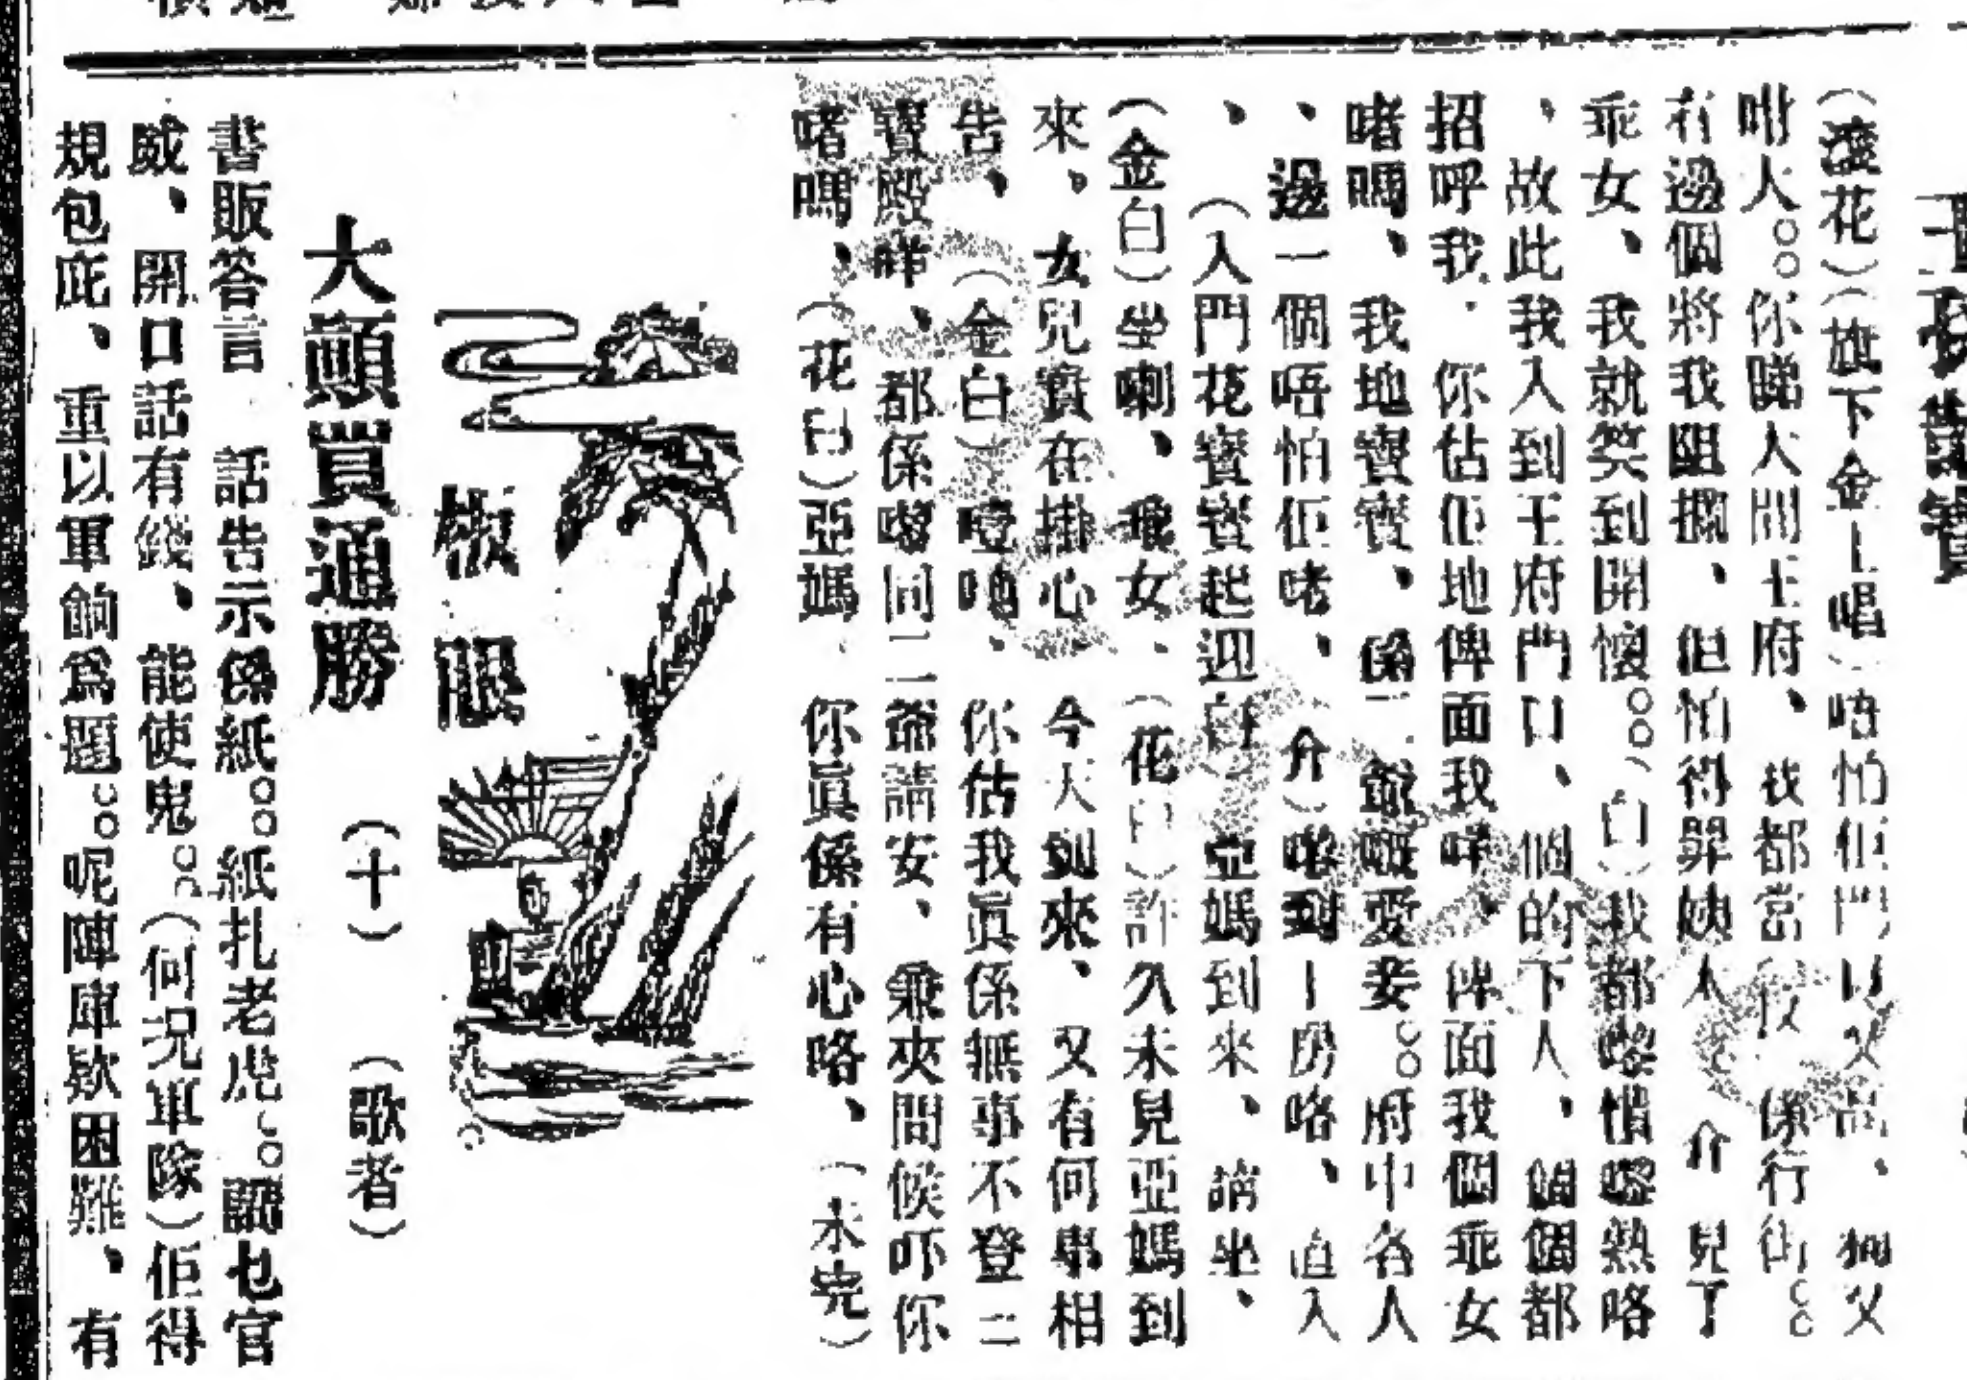 (滾花)(旗下金上唱)唔怕佢門口
咁人。。你睇大間王府、我都當 係行街。。
有邊個將我阻攔、但怕得罪姨太 介 見了
乖女、我就笑到開懷。。(白)我都嚟慣嚟熟咯
、故此我入到王府門口、個的下人、個個都
招呼我．你估佢地俾面我咩、俾面我個乖女
啫嗎、我地寶寶、係二爺嘅愛妾。。府中各人
、邊一個唔怕佢啫、 介)嚟到上房咯、直入
、(入門花寶寶起迎白)亞媽到來、請坐、
(金白)坐喇、乖女、(花白)許久未見亞媽到
來、女兒實在掛心、今天到來、又有何事相
告、(金白) 、你估我眞係無事不登三
寶殿咩、都係嚟同二爺請安、兼夾問候吓你
啫嗎、(花白)亞媽 你眞係有心咯、(未完)
板眼
大顚買通勝 (十) (歌者)
書販答言 話告示係紙。。紙扎老虎。。 也官
威、開口話有錢、能使鬼。。(何況軍隊)佢得
規包庇、重以軍餉爲題。。呢陣庫欵困難、有